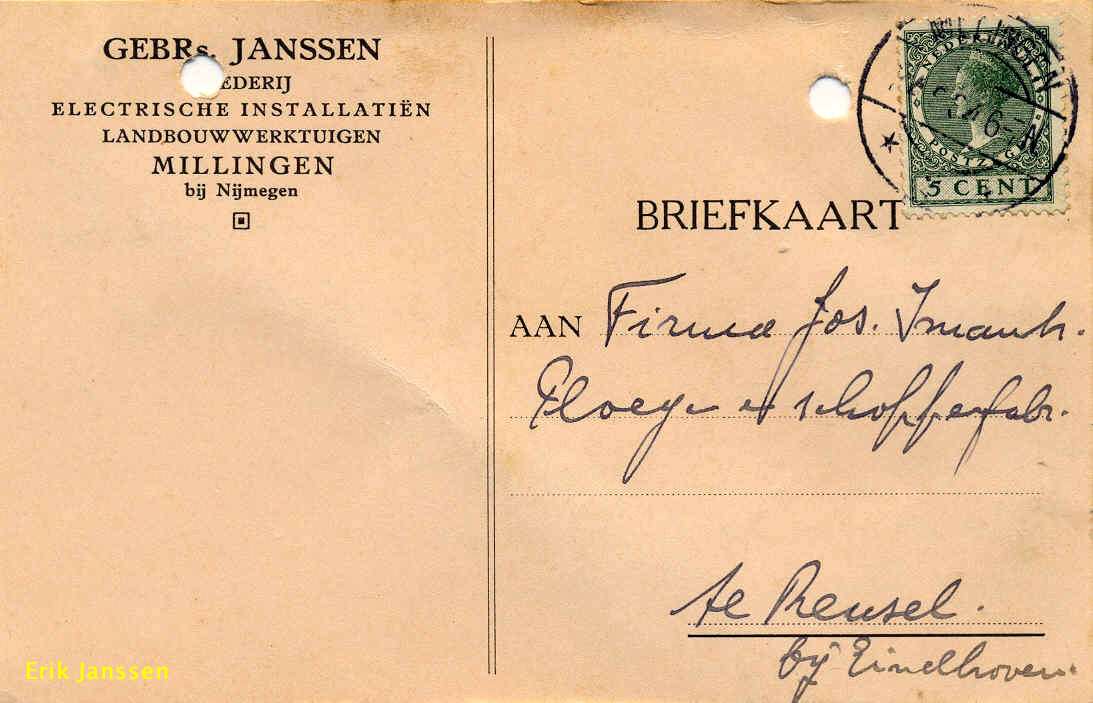 GEBRs. JANSSEN
EDERIJ
ELECTRISCHE INSTALLATIËN
LANDBOUWWERKTUIGEN
MILLINGEN
bij Nijmegen
MILLINGEN
NEDERLAND
POSTZEGEL
5 CENT
BRIEFKAART
AAN Firma Jos.
Ploeg- schoffelfabr.
te Reusel.
bij Eindhoven.
Erik Janssen